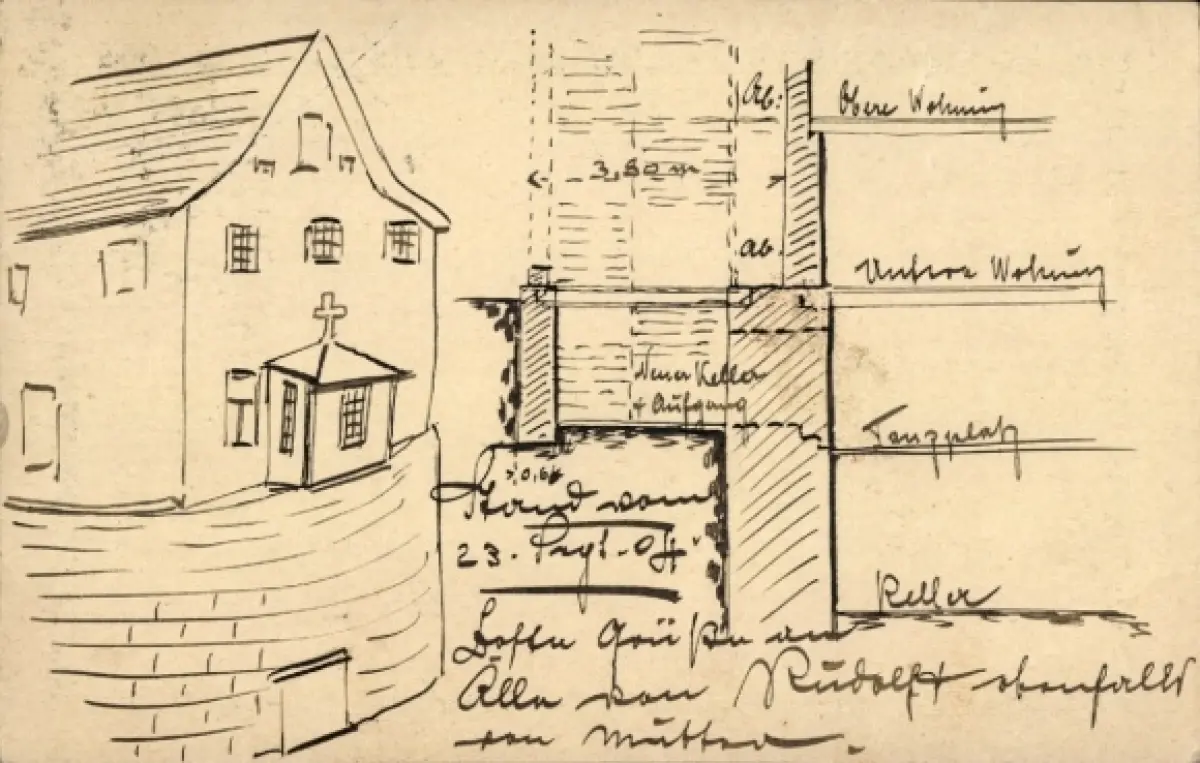 Ab:
Obere Wohnung
3,80 m
ab.
Untere Wohnung
Neuer Keller
+ Aufgang
Tanzplatz
0,6
Stand vom
23. Sept.
Keller
Beste Grüße an
Alle von Rudolf + ebenfalls
von Mutter.